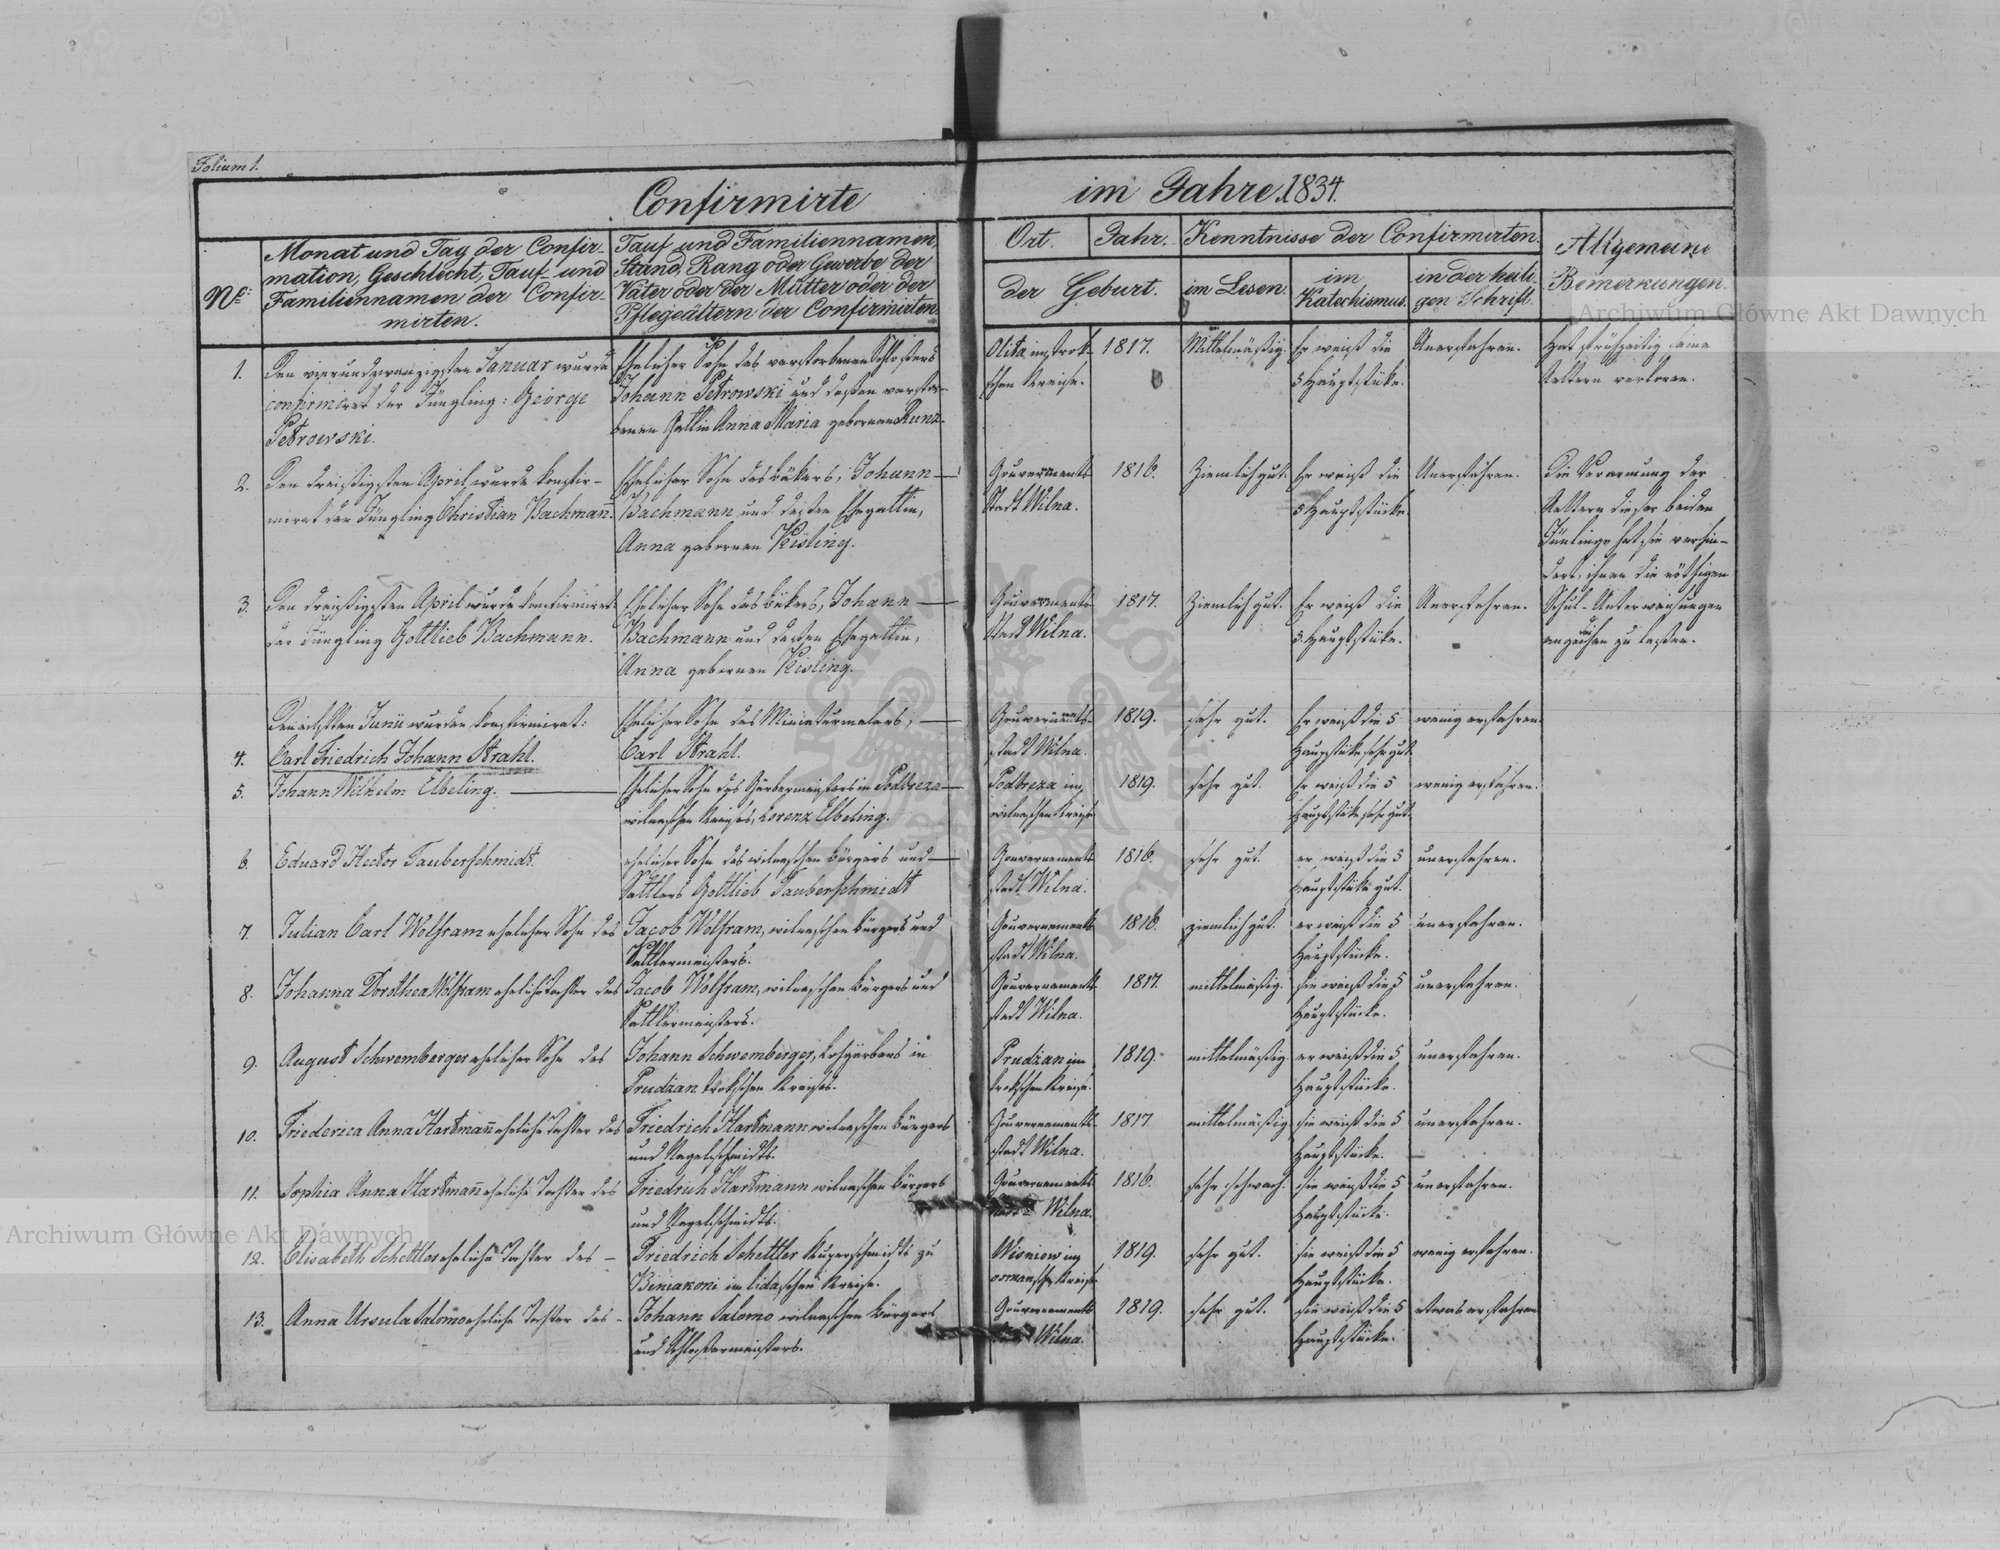 Folium 1.
Confirmirte im Jahre 1834.
Nº:
Monat und Tag der Confir-
mation, Geschlecht, Tauf- und
Familiennamen der Confir-
mirten.
Tauf und Familiennamen,
Stand, Rang oder Gewerbe der
Väter oder der Mütter oder der
Pflegeältern der Confirmirten.
Ort. Jahr.
der Geburt.
Kenntnisse der Confirmirten.
im Lesen.
im
Katechismus.
in der heili-
gen Schrift.
Allgemeine
Bemerkungen.
1.
Den vierundzwanzigsten Januar wurde
confirmiret der Jüngling: George
Petrowski.
Ehelicher Sohn des verstorbenen Schlossers
Johann Petrowski und dessen verstor-
benen Gattin Anna Maria gebornen Kunz.
Olita im trok-
schen Kreise.
1817.
Mittelmäßig.
Er weiß die
5 Hauptstücke.
Unerfahren.
Hat frühzeitig seine
Aeltern verloren.
2.
Den dreißigsten April wurde konfir-
miret der Jüngling Christian Bachman.
Ehelicher Sohn des Bäkers, Johann
Bachmann und dessen Ehegattin,
Anna gebornen Kisling.
Gouvernements
Stadt Wilna.
1816.
Ziemlich gut.
Er weiß die
5 Hauptstücke.
Unerfahren.
Die Verarmung der
Aeltern dieser beiden
Jünlinge hat sie verhin-
dert, ihnen die nöthigen
Schul-Unterweisungen
angedeihen zu lassen.
3.
Den dreißigsten April wurde konfirmiret
der Jüngling Gottlieb Bachmann.
Ehelicher Sohn des Bäkers, Johann
Bachmann und dessen Ehegattin,
Anna gebornen Kisling.
Gouvernements
Stadt Wilna.
1817.
Ziemlich gut.
Er weiß die
5 Hauptstücke.
Unerfahren.
Den achten Junii wurden konfirmiret:
4.
Carl Friedrich Johann Strahl.
Ehelicher Sohn des Miniaturmalers,
Carl Strahl.
Gouvernements-
stadt Wilna.
1819.
sehr gut.
Er weiß die 5
Hauptstücke sehr gut.
wenig erfahren.
5.
Johann Wilhelm Elbeling.
Ehelicher Sohn des Gärbermeisters in Podbreza
wilnaschen Kreises, Lorenz Elbeling.
Podbreza im
wilnaschen Kreise
1819.
sehr gut.
Er weiß die 5
Hauptstücke sehr gut.
wenig erfahren.
6.
Eduard Hector Tauberschmidt.
ehelicher Sohn des wilnaschen Bürgers und
Sattlers Gottlieb Tauberschmidt
Gouvernements
stadt Wilna.
1816.
sehr gut.
er weiß die 5
Hauptstücke gut.
unerfahren.
7.
Julian Carl Wolfram ehelicher Sohn des
Jacob Wolfram, wilnaschen Bürgers und
Sattlermeisters.
Gouvernements
stadt Wilna.
1816.
ziemlich gut.
er weiß die 5
Hauptstücke.
unerfahren.
8.
Johanna Dorothea Wolfram eheliche Tochter des
Jacob Wolfram, wilnaschen Bürgers und
Sattlermeisters.
Gouvernements
stadt Wilna.
1817.
mittelmäßig.
sie weiß die 5
Hauptstücke.
unerfahren.
9.
August Schwemberger ehelicher Sohn des
Johann Schwemberger, Lohgärbers in
Prudzan trokschen Kreises.
Prudzan im
trokschen Kreise.
1819.
mittelmäßig.
er weiß die 5
Hauptstücke.
unerfahren.
10.
Friederica Anna Hartmañ eheliche Tochter des
Friedrich Hartmann wilnaschen Bürgers
und Nagelschmidts.
Gouvernements
stadt Wilna.
1817.
mittelmäßig
sie weiß die 5
Hauptstücke.
unerfahren.
11.
Sophia Anna Hartmañ eheliche Tochter des
Friedrich Hartmann wilnaschen Bürgers
und Nagelschmidts.
Gouvernements
stadt Wilna.
1816.
sehr schwach.
sie weiß die 5
Hauptstücke.
unerfahren.
12.
Elisabeth Schettler eheliche Tochter des
Friedrich Schettler Kupferschmidts zu
Biniakoni im lidaschen Kreise.
Wisniew im
osmanschen Kreise
1819.
sehr gut.
sie weiß die 5
Hauptstücke.
wenig erfahren.
13.
Anna Ursula Salomo eheliche Tochter des
Johann Salomo wilnaschen Bürgers
und Schlossermeisters.
Gouvernements
Wilna.
1819.
sehr gut.
sie weiß die 5
Hauptstücke.
etwas erfahren
Archiwum Główne Akt Dawnych
Archiwum Główne Akt Dawnych